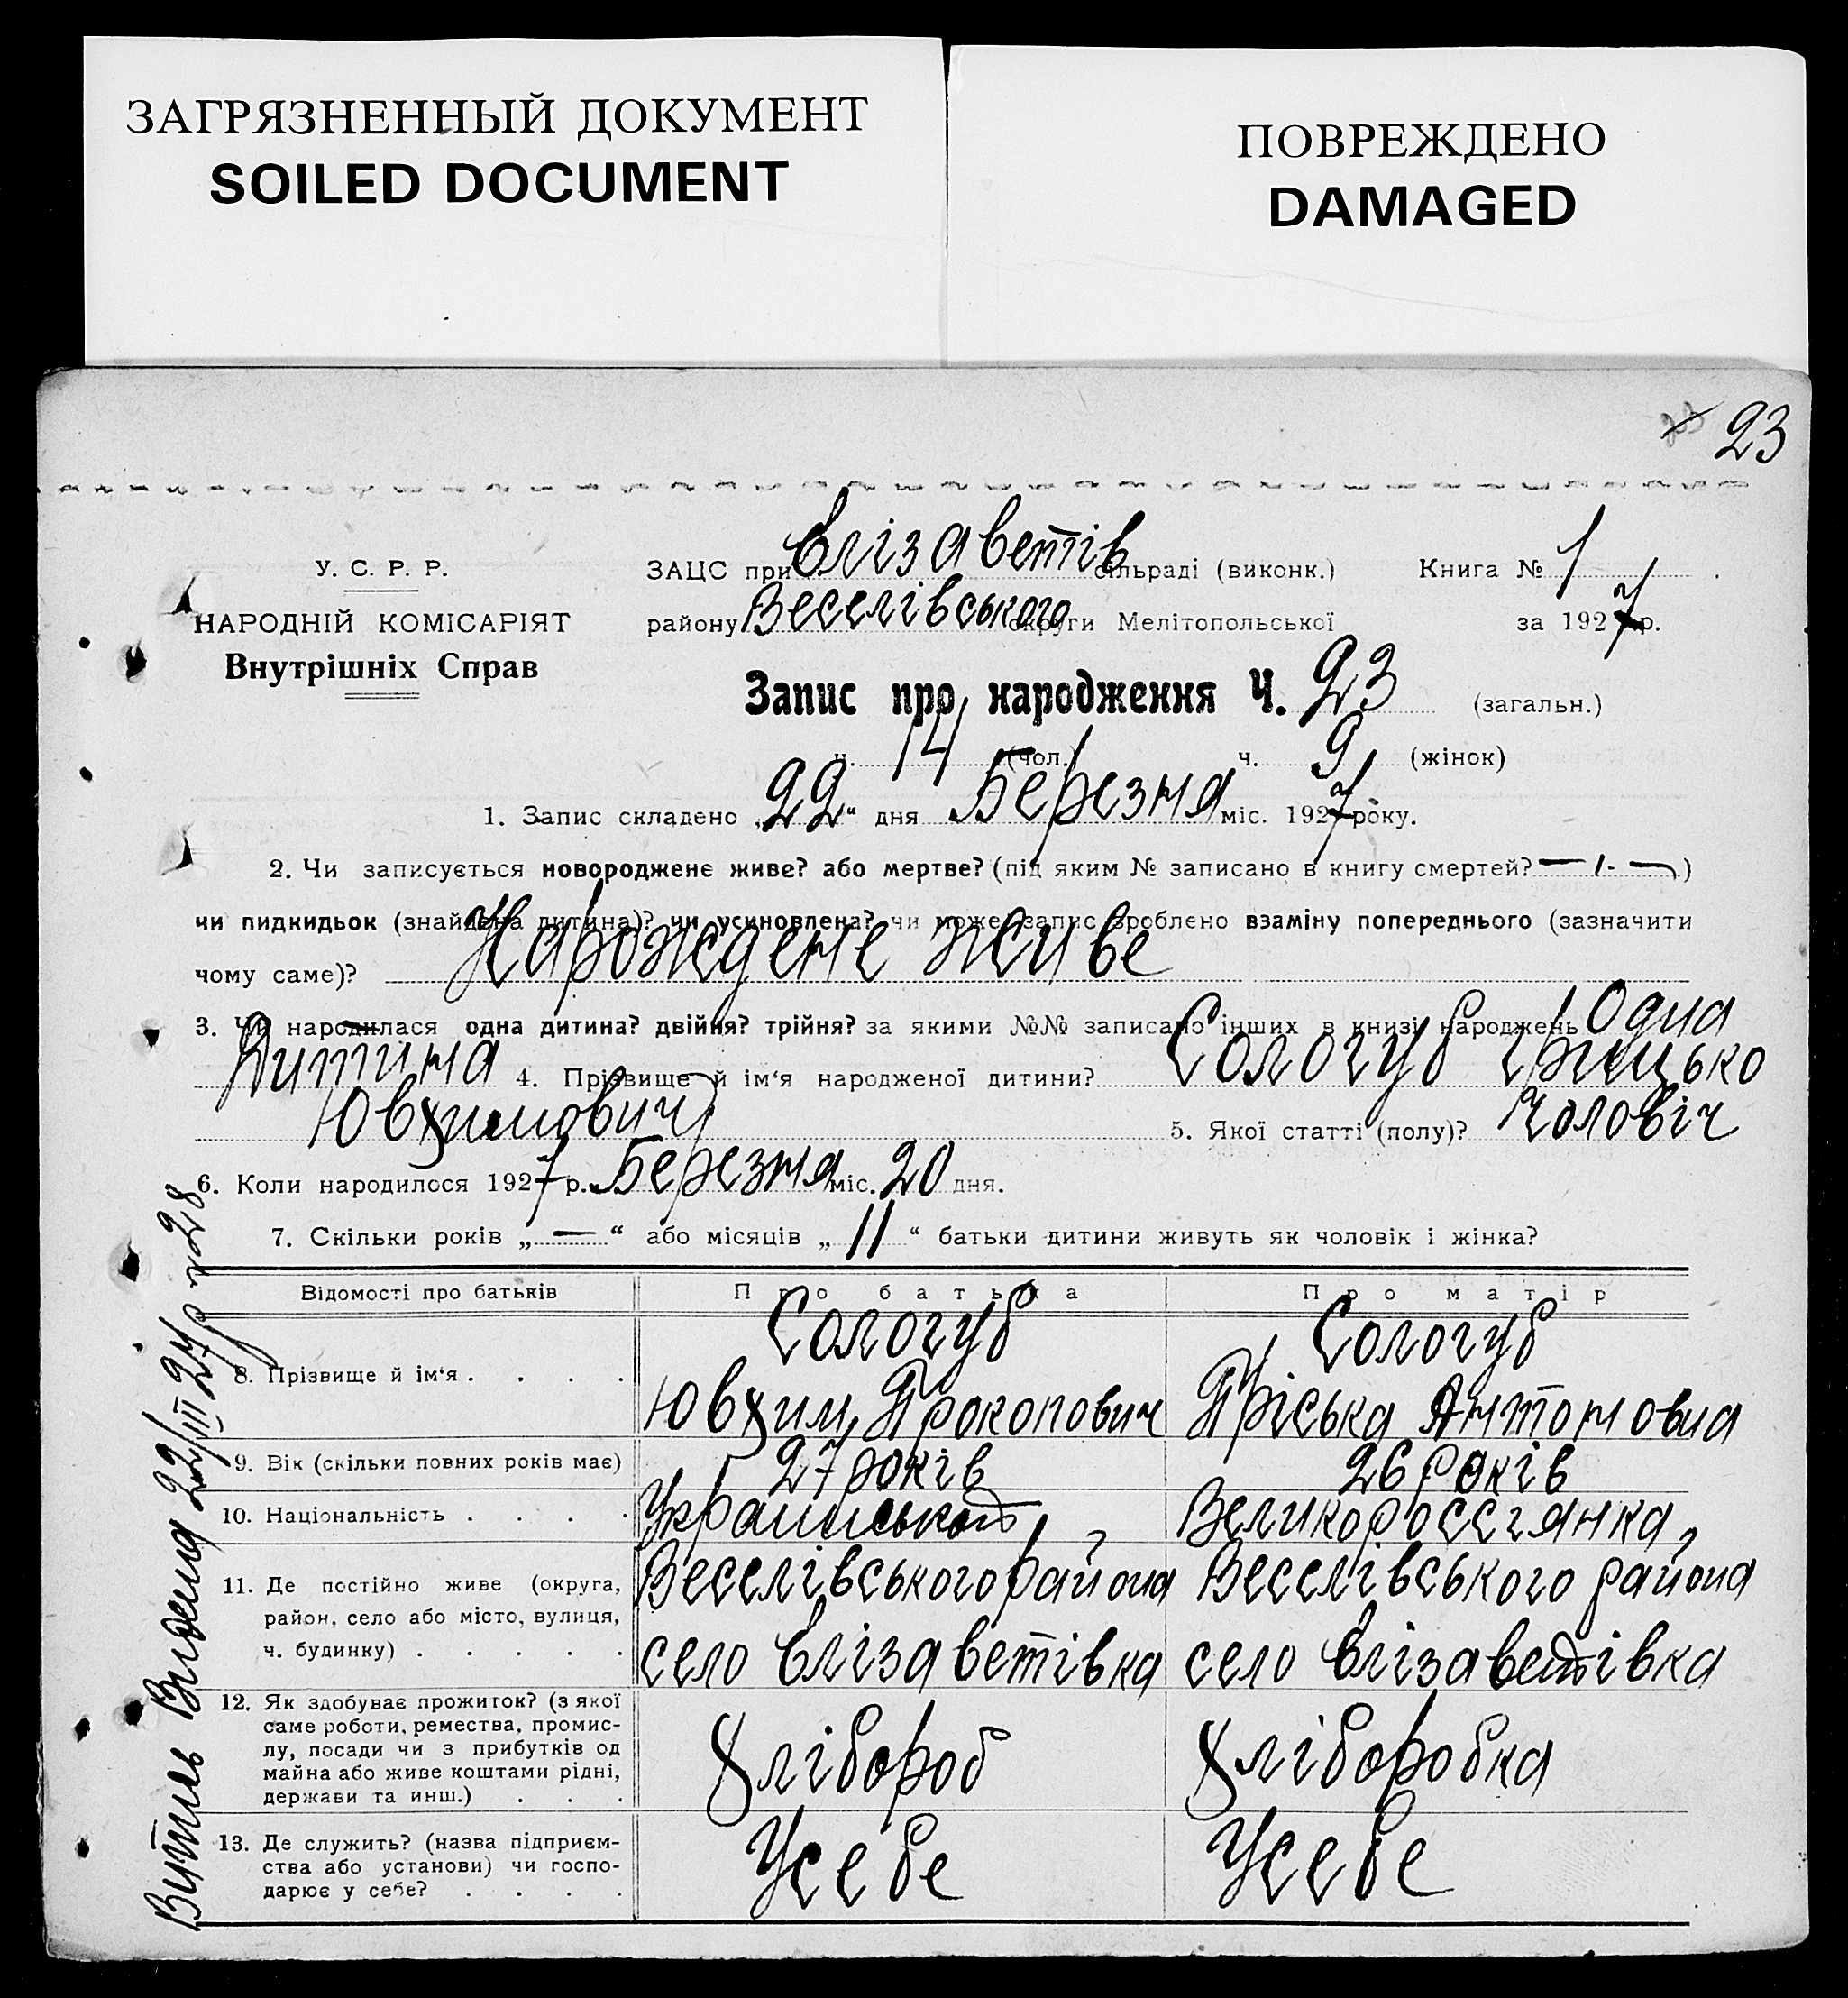 ЗАГРЯЗНЕННЫЙ ДОКУМЕНТ
SOILED DOCUMENT
ПОВРЕЖДЕНО
DAMAGED
23
У. С. Р. Р.
НАРОДНІЙ КОМІСАРІЯТ
Внутрішніх Справ
ЗАЦС при Єлізаветів сільраді (виконк.) Книга № 1
району Веселівського округи Мелітопольської за 1927 р.
Запис про народження Ч. 23 (загальн.)
ч. 14 (чол.) ч. 9 (жінок)
1. Запис складено „22“ дня Березня міс. 1927 року.
2. Чи записується новороджене живе? або мертве? (під яким № записано в книгу смертей? — )
чи пидкидьок (знайдена дитина)? чи усиновлена? чи може запис зроблено взаміну попереднього (зазначити
чому саме)? Нарождене живе
3. Чи народилася одна дитина? двійня? трійня? за якими №№ записано інших в книзі народжень Одна
Дитина 4. Прізвище й ім‘я народженої дитини? Сологуб Грицько
Ювхимович 5. Якої статті (полу)? Чоловіч
6. Коли народилося 1927 р. Березня міс. 20 дня.
7. Скільки років „—“ або місяців „11“ батьки дитини живуть як чоловік і жінка?
Відомості про батьків Про батька Про матір
8. Прізвище й ім‘я . . . . Сологуб Сологуб
Ювхим Прокопович Пріська Антоновна
9. Вік (скільки повних років має) 27 років 26 років
10. Національність . . . . Український Великороссіянка
11. Де постійно живе (округа, Веселівського района Веселівського района
район, село або місто, вулиця,
ч. будинку) . . . . . село Єлізаветівка село Єлізаветівка
12. Як здобуває прожиток? (з якої
саме роботи, ремества, промис-
лу, посади чи з прибутків од Хлібороб Хліборобка
майна або живе коштами рідні,
держави та инш.) . . .
13. Де служить? (назва підприєм- Усебе Усебе
ства або установи) чи госпо-
дарює у себе? . . . .
Витяг Видана 22/III 27 р № 28